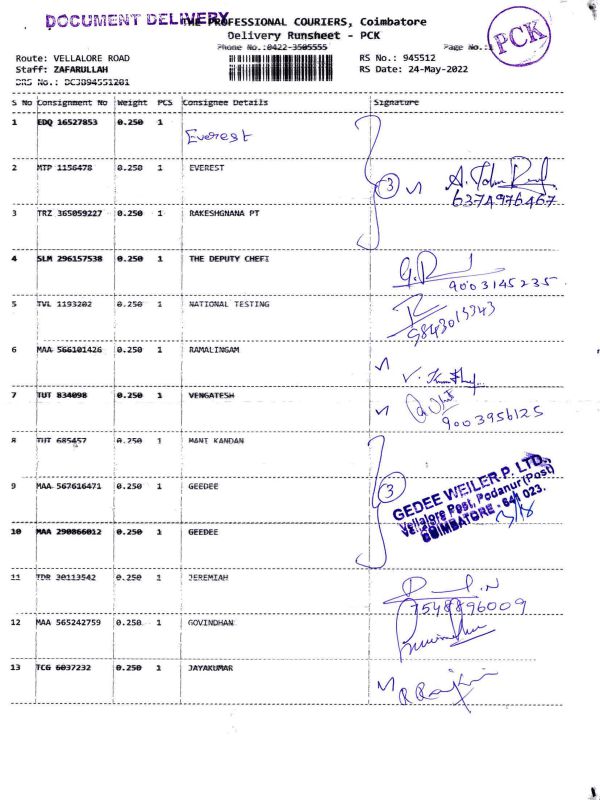 DOCUMENT DELIVERY
THE PROFESSIONAL COURIERS, Coimbatore
Delivery Runsheet - PCK
PCK
Phone No.:0422-3505555 Page No.:1
Route: VELLALORE ROAD RS No.: 945512
Staff: ZAFARULLAH RS Date: 24-May-2022
DRS No.: DC3894551201
S No Consignment No Weight PCS Consignee Details Signature
1 EDQ 16527853 0.250 1
Everest
2 MTP 1156478 0.250 1 EVEREST
3
6374976467
3 TRZ 365059227 0.250 1 RAKESHGNANA PT
4 SLM 296157538 0.250 1 THE DEPUTY CHEFI
9003145235
5 TVL 1193202 0.250 1 NATIONAL TESTING
6 MAA 566101426 0.250 1 RAMALINGAM
7 TUT 834098 0.250 1 VENGATESH
9003956125
8 TUT 685457 0.250 1 MANI KANDAN
9 MAA 567616471 0.250 1 GEEDEE
3
GEDEE WEILER P. LTD.,
Vellalore Post, Podanur (Post)
COIMBATORE - 641 023.
10 MAA 290866012 0.250 1 GEEDEE
11 TDR 30113542 0.250 1 JEREMIAH
7548896009
12 MAA 565242759 0.250 1 GOVINDHAN
13 TCG 6037232 0.250 1 JAYAKUMAR